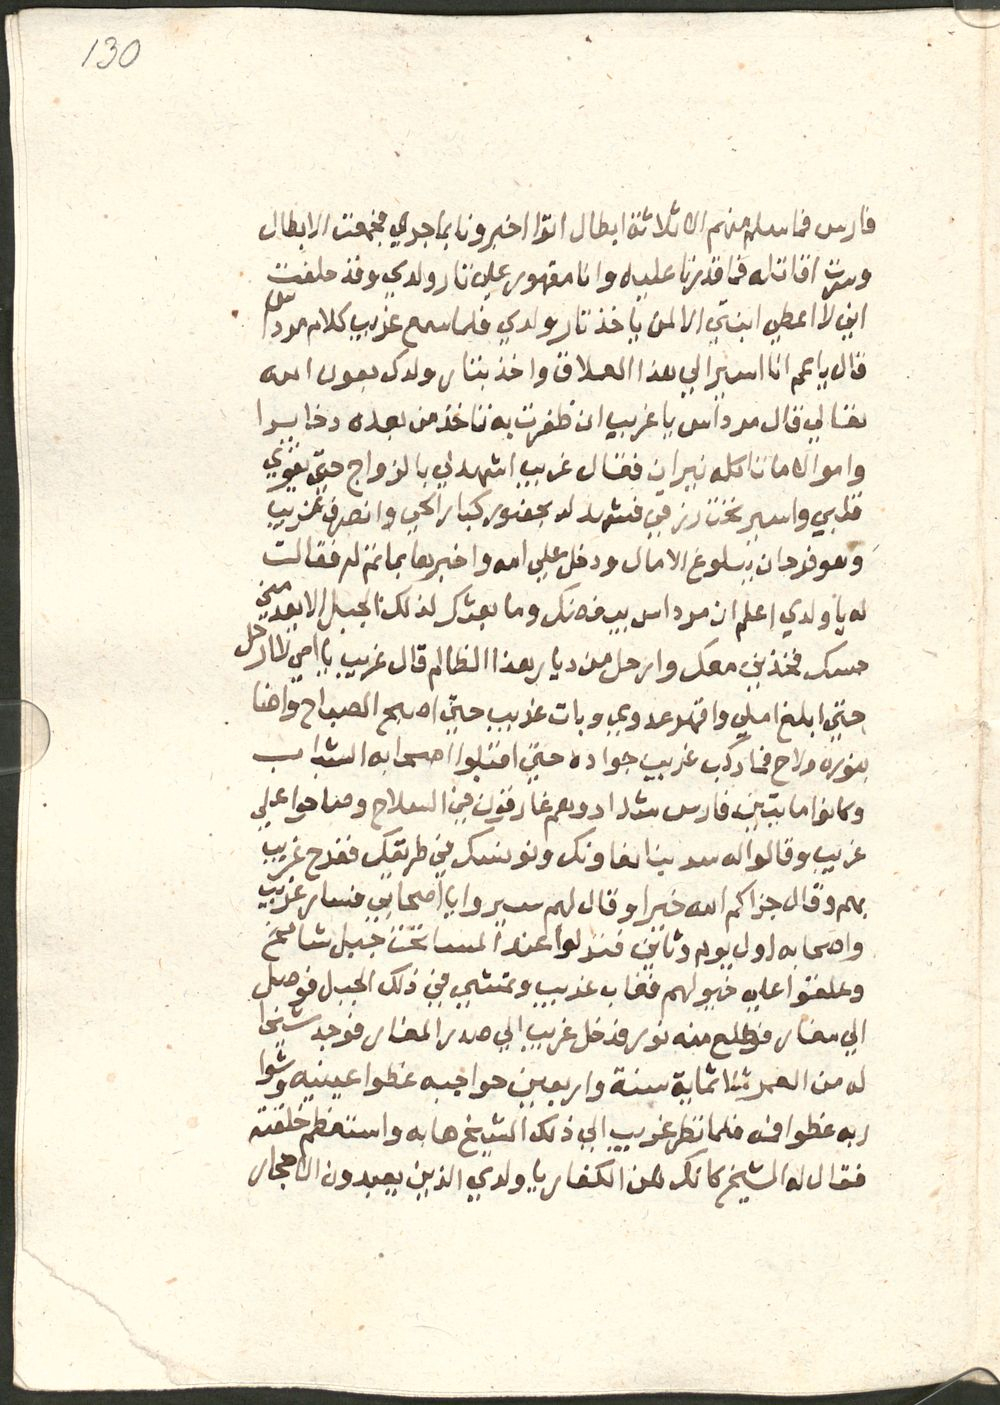 130
فارس فما سلم منهم الا ثلاثة ابطال اتوا اخبرونا بما جري فجمعت الابطال
وسرت اقاتله فما قدرنا عليه وانا مقهور علي تار ولدي وقد حلفت
اني لا اعطي ابنتي الا لمن ياخذ تار ولدي فلما سمع غريب كلام مرداس
قال يا عم انا اسير الي هذا العملاق واخذ بتار ولدك بعون الله
تعالي قال مرداس يا غريب ان ظفرت به تاخذ من بعده دخايرا
واموالا ما تاكله نيران فقال غريب اشهد لي بالزواج حتي يقوي
قلبي واسير نحت رزقي فشهد له بحضور كبار الحي وانصرف غريب
وهو فرحان ببلوغ الامال ودخل علي امه واخبرها بما تم له فقالت
له يا ولدي اعلم ان مرداس يبغضك وما بعثك لذلك الجبل الا يعدمني
حسك فخذني معك وارحل من ديار هذا الظالم قال غريب يا امي لا ارحل
حتي ابلغ املي واقهر عدوي وبات غريب حتي اصبح الصباح واضا
بنوره ولاح فما ركب غريب جواده حتي اقبلوا اصحابه الشباب
وكانوا مايتين فارس شداد وهم غارقون في السلاح وصاحوا علي
غريب وقالوا له سر بنا نعاونك ونونسك في طريقك ففرح غريب
بهم وقال جزاكم الله خيرا وقال لهم سيروا يا اصحابي فسار غريب
واصحابه اول يوم وثاني فنزلوا عند المسا تحت جبل شامخ
وعلقوا علي خيولهم فغاب غريب وتمشي في ذلك الجبل فوصل
الي مغار فطلع منه نور فدخل غريب الي صدر المغار فوجد شيخا
له من العمر ثلثماية سنة واربعين حواجبه غطوا عينيه وشوا
ربه غطوا فمه فلما نظر غريب الي ذلك الشيخ هابه واستعظم خلقته
فقال له الشيخ كانك من الكفار يا ولدي الذين يعبدون الاحجار